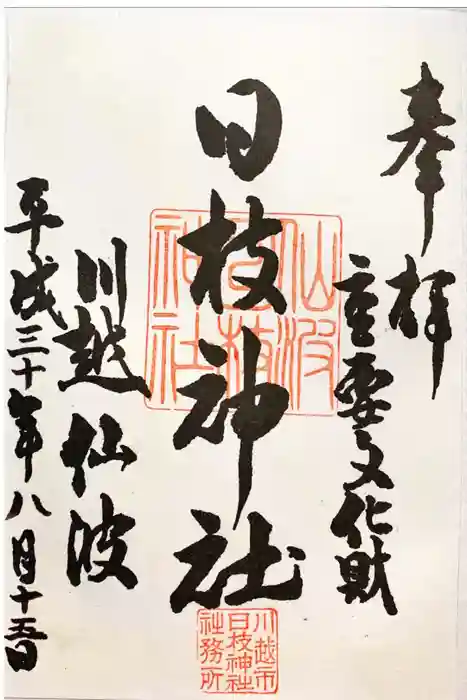 奉拝
重要文化財
日枝神社
仙波
日枝
神社
川越市
日枝神社
社務所
川越仙波
平成三十年八月十五日